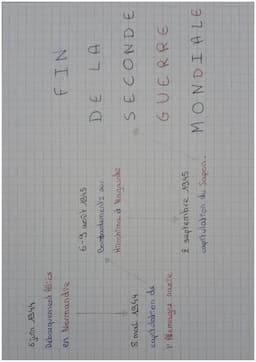 FIN
DE LA
SECONDE
GUERRE
MONDIALE
6 juin 1944
Débarquement Alliés
en Normandie
6-9 août 1945
Bombardements sur
Hiroshima et Nagasaki
8 mai 1944
capitulation de
l'Allemagne nazie
2 septembre 1945
capitulation du Japon.